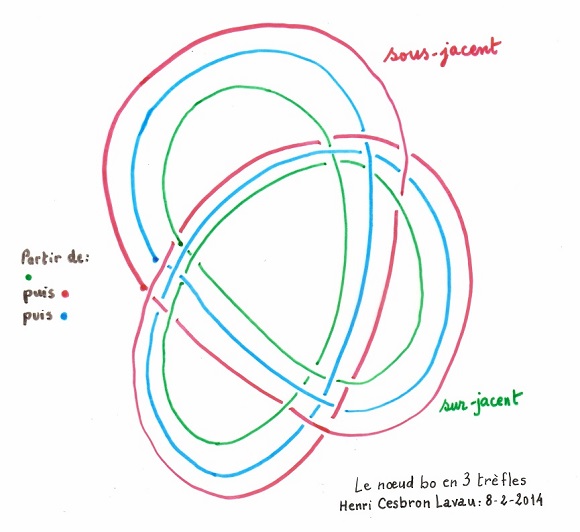 sous-jacent
Partir de:
puis
puis
sur-jacent
Le nœud bo en 3 trèfles
Henri Cesbron Lavau: 8-2-2014